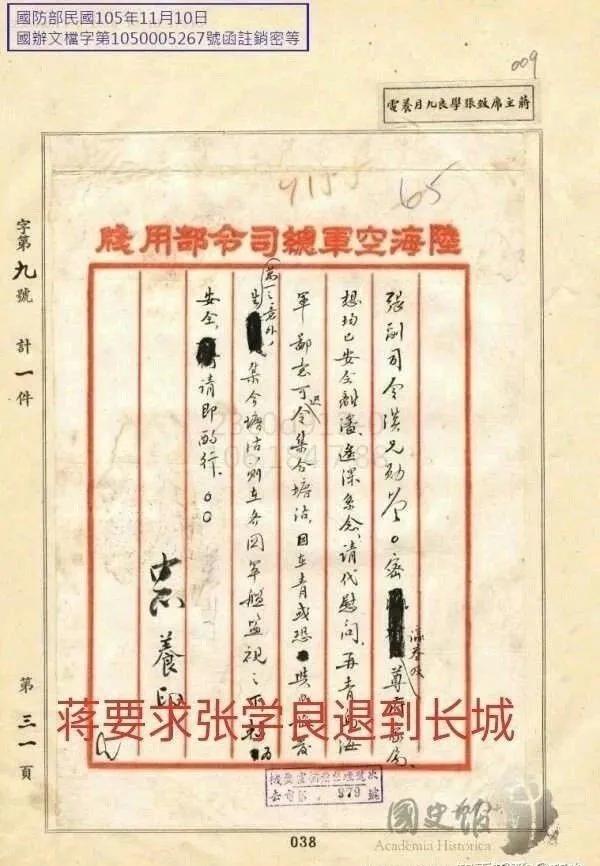 國防部民國105年11月10日
國辦文檔字第1050005267號函註銷密等
009
蔣主席致張學良九月養電
65
陸海空軍總司令部用牋
張副司令漢兄勛鑒。密 尊府眷屬
想均已安全離瀋,遙深系念,請代慰問。再青島海
軍鄙意可令集合塘沽,因在青或恐
萬一之意外,
集合塘沽,則在各國軍艦監視之
安全, 請即酌行。○○
中正 養印
字第九號 計一件
第三一頁
蒋要求张学良退到长城
979 號
038
國史館
Academia Historica